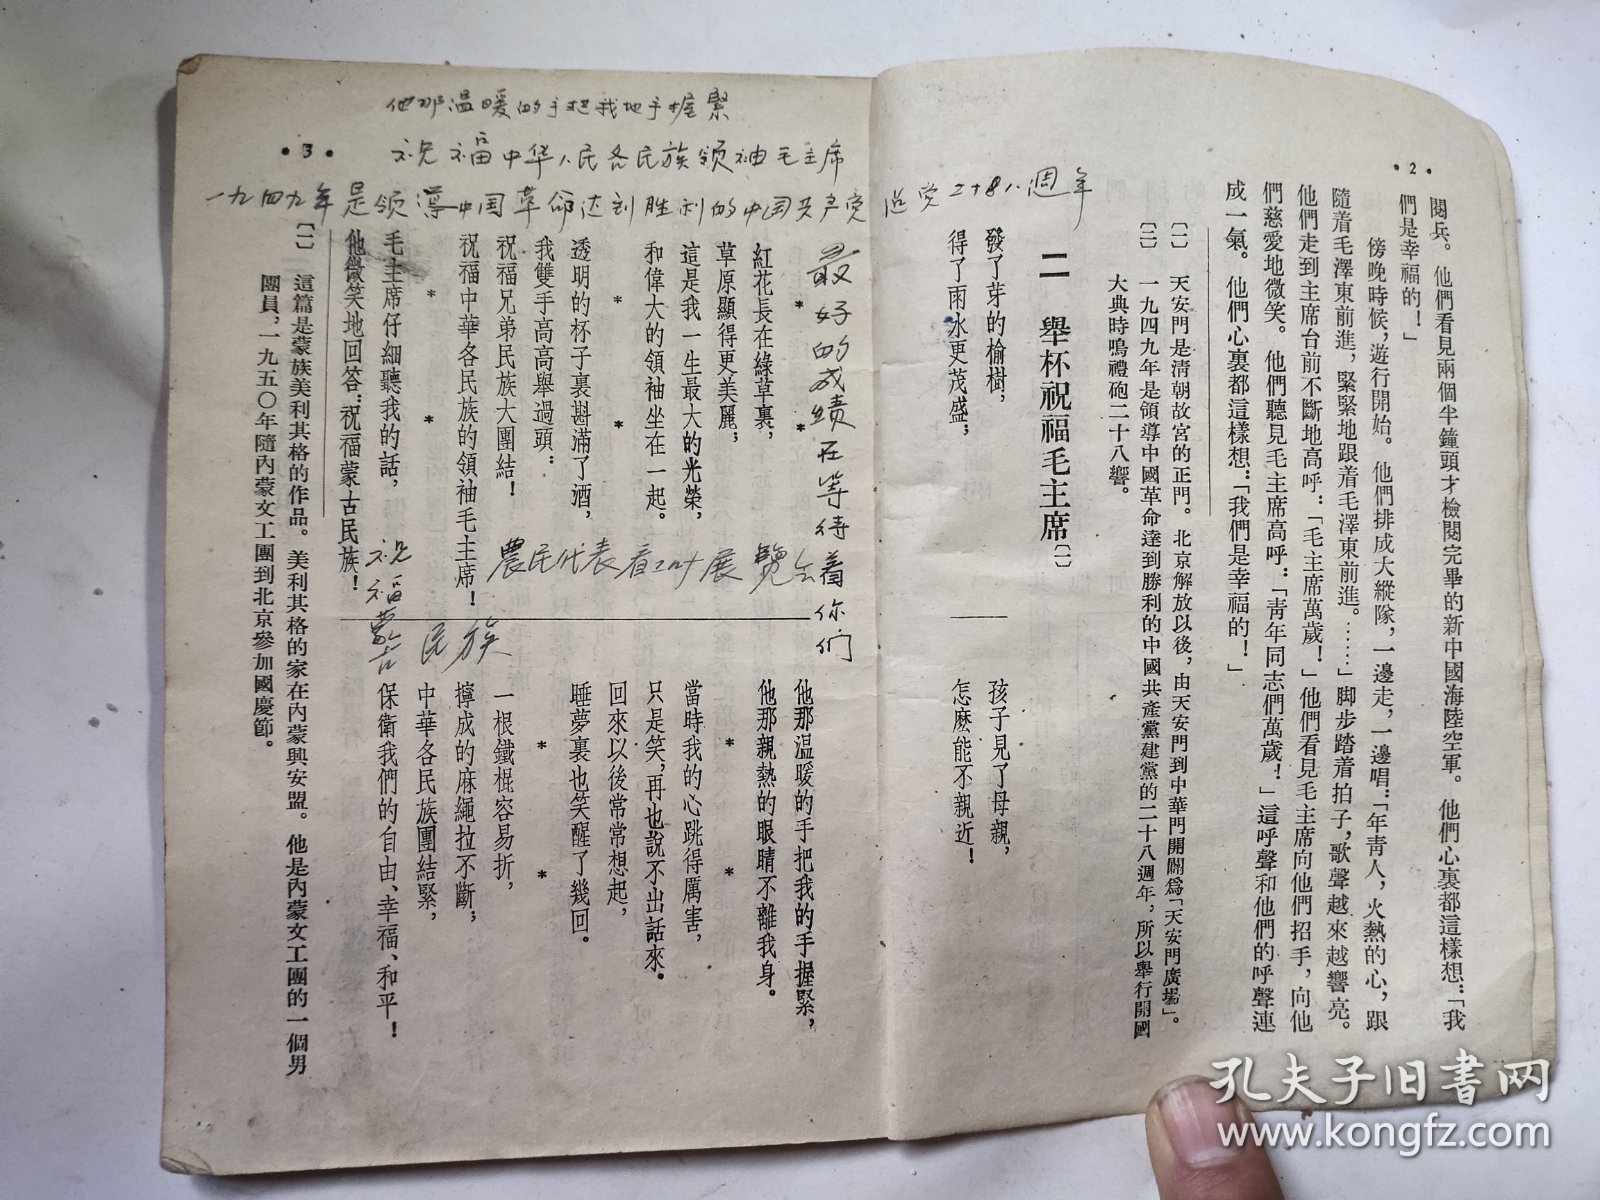 •2•
閱兵。他們看見兩個半鐘頭才檢閱完畢的新中國海陸空軍。他們心裏都這樣想:「我
們是幸福的!」
傍晚時候,遊行開始。他們排成大縱隊,一邊走,一邊唱:「年青人,火熱的心,跟
隨着毛澤東前進,緊緊地跟着毛澤東前進。……」脚步踏着拍子,歌聲越來越響亮。
他們走到主席台前不斷地高呼:「毛主席萬歲!」他們看見毛主席向他們招手,向他
們慈愛地微笑。他們聽見毛主席高呼:「青年同志們萬歲!」這呼聲和他們的呼聲連
成一氣。他們心裏都這樣想:「我們是幸福的!」
〔一〕 天安門是清朝故宮的正門。北京解放以後,由天安門到中華門開闢爲「天安門廣場」。
〔二〕 一九四九年是領導中國革命達到勝利的中國共產黨建黨的二十八週年,所以舉行開國
大典時鳴禮砲二十八響。
二 舉杯祝福毛主席〔一〕
發了芽的榆樹,
得了雨水更茂盛;
孩子見了母親,
怎麽能不親近!
•3•
紅花長在綠草裏,
草原顯得更美麗;
這是我一生最大的光榮,
和偉大的領袖坐在一起。
* *
透明的杯子裏斟滿了酒,
我雙手高高舉過頭:
祝福兄弟民族大團結!
祝福中華各民族的領袖毛主席!
* *
毛主席仔細聽我的話,
他微笑地回答:祝福蒙古民族!
他那溫暖的手把我的手握緊,
他那親熱的眼睛不離我身。
* *
當時我的心跳得厲害,
只是笑,再也說不出話來。
回來以後常常想起,
睡夢裏也笑醒了幾回。
* *
一根鐵棍容易折,
擰成的麻繩拉不斷;
中華各民族團結緊,
保衛我們的自由、幸福、和平!
〔一〕 這篇是蒙族美利其格的作品。美利其格的家在內蒙興安盟。他是內蒙文工團的一個男
團員,一九五〇年隨內蒙文工團到北京參加國慶節。
他那温暖的手把我地手握緊
祝福中华人民各民族领袖毛主席
一九四九年是领導中国革命达到胜利的中国共产党
最好的成績在等待着你們
農民代表看 展覽会
祝福蒙古民族
孔夫子旧書网
www.kongfz.com